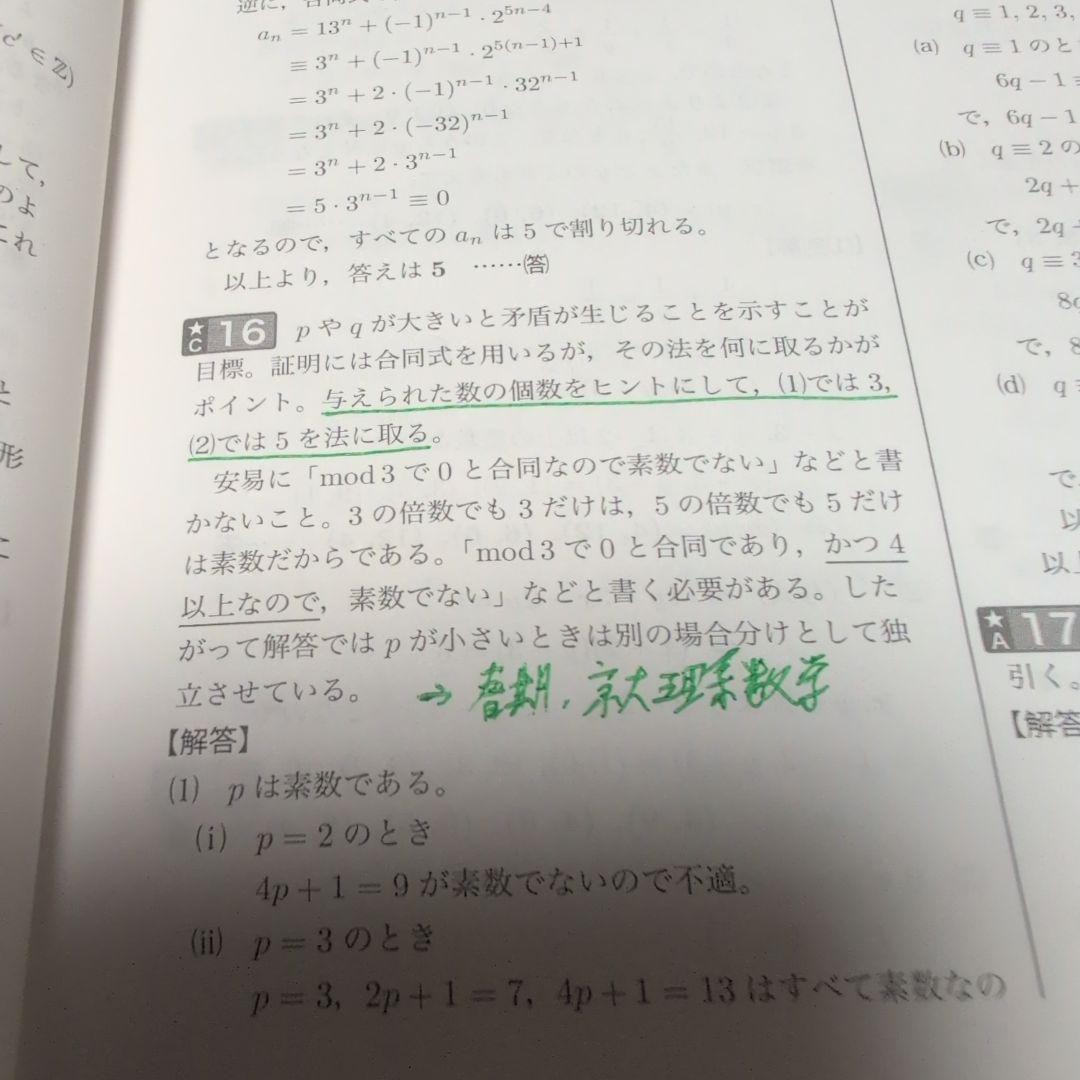 c' ∈ ℤ)
して,
のよ
これ
形
逆に,
aₙ = 13ⁿ + (−1)ⁿ⁻¹ · 2⁵ⁿ⁻⁴
≡ 3ⁿ + (−1)ⁿ⁻¹ · 2⁵⁽ⁿ⁻¹⁾⁺¹
= 3ⁿ + 2 · (−1)ⁿ⁻¹ · 32ⁿ⁻¹
= 3ⁿ + 2 · (−32)ⁿ⁻¹
= 3ⁿ + 2 · 3ⁿ⁻¹
= 5 · 3ⁿ⁻¹ ≡ 0
となるので, すべての aₙ は 5 で割り切れる。
以上より, 答えは 5 ……(答)
★C 16 p や q が大きいと矛盾が生じることを示すことが
目標。証明には合同式を用いるが, その法を何に取るかが
ポイント。与えられた数の個数をヒントにして, (1)では 3,
(2)では 5 を法に取る。
安易に「mod 3 で 0 と合同なので素数でない」などと書
かないこと。3 の倍数でも 3 だけは, 5 の倍数でも 5 だけ
は素数だからである。「mod 3 で 0 と合同であり, かつ 4
以上なので, 素数でない」などと書く必要がある。した
がって解答では p が小さいときは別の場合分けとして独
立させている。 → 春期, 京大理系数学
【解答】
(1) p は素数である。
(i) p = 2 のとき
4p + 1 = 9 が素数でないので不適。
(ii) p = 3 のとき
p = 3, 2p + 1 = 7, 4p + 1 = 13 はすべて素数なの
q ≡ 1, 2, 3,
(a) q ≡ 1 のと
6q − 1 ≡
で, 6q − 1
(b) q ≡ 2 の
2q +
で, 2q
(c) q ≡ 3
8q
で, 8
(d) q ≡
で
以
以上
★A 17
引く。
【解答